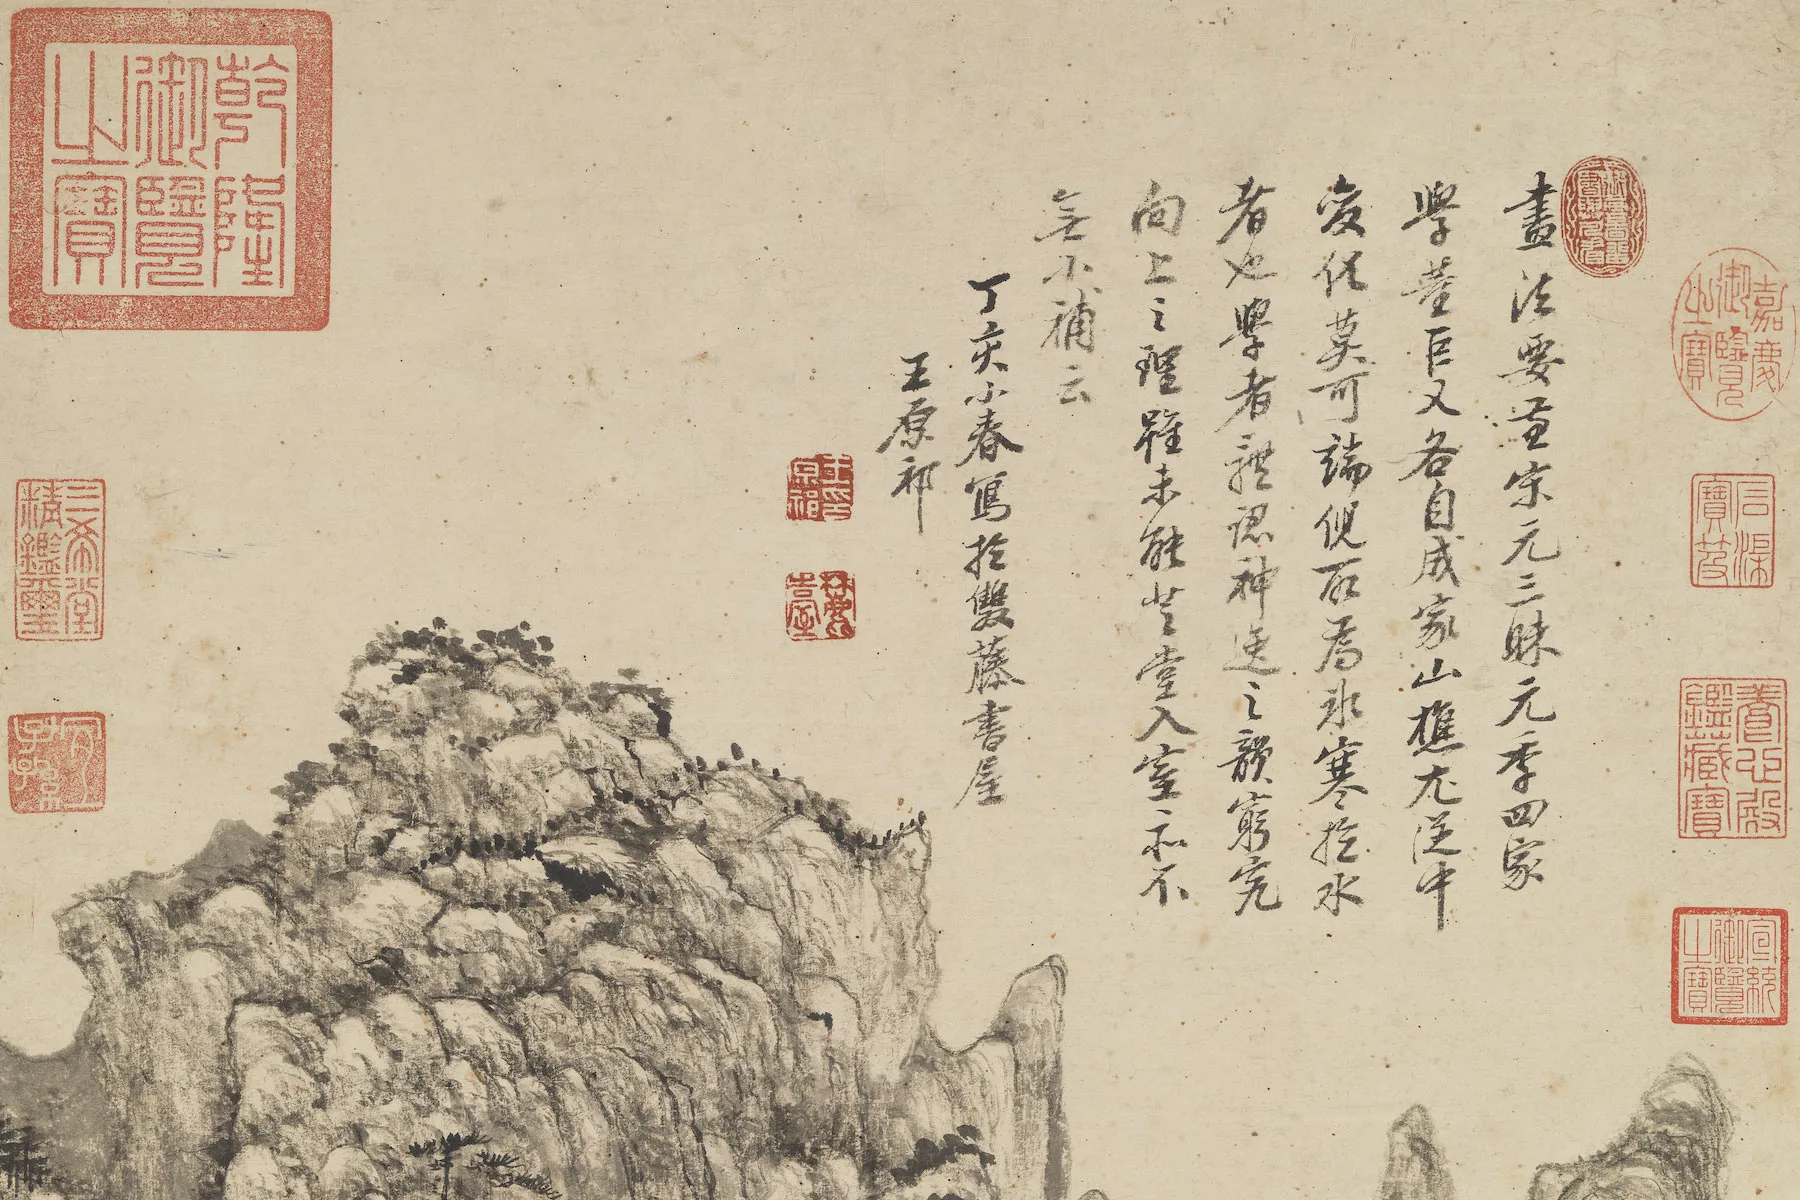 御書畫圖留與人看
畫法要兼宋元三昧元季四家
學董巨又各自成家山樵尤從中
變化莫可端倪所為氷寒於水
者也學者體認神逸之韻窮究
向上之理雖未能登堂入室亦不
無小補云
丁亥小春寫於雙藤書屋
王原祁
王原祁印
麓臺
嘉慶御覽之寶
石渠寶笈
養心殿鑑藏寶
宣統御覽之寶
乾隆御覽之寶
三希堂精鑑璽
宜子孫